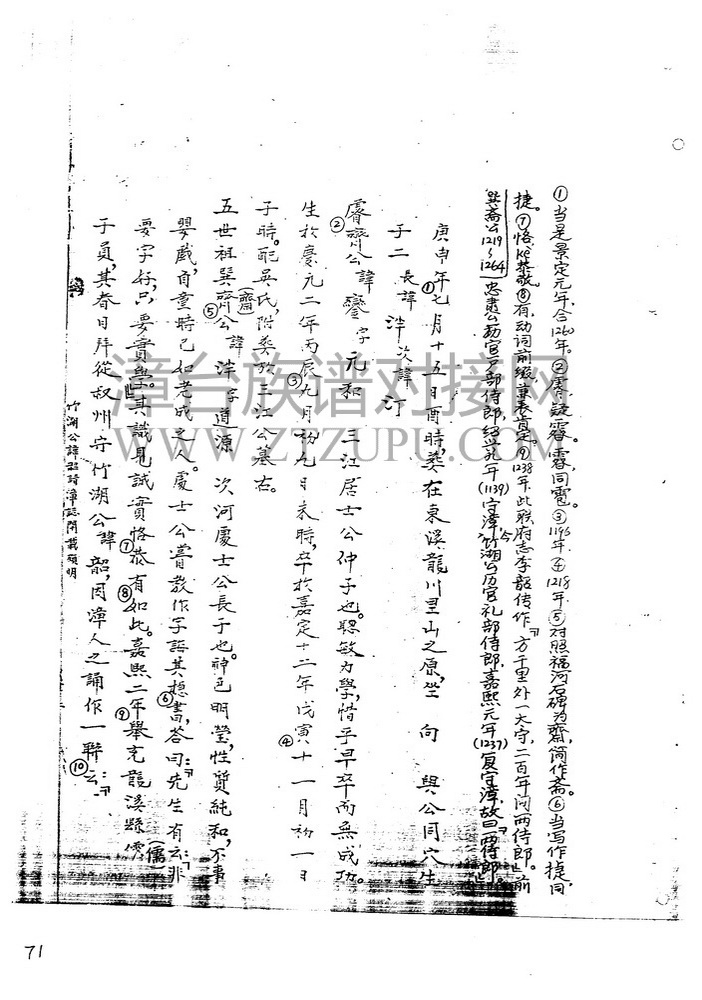 ①当是景定元年,合1260年。②雰疑霱,霱同霱。③1196年④1218年⑤对照福河石碑为齋,简作斋。⑥当写作捷,同
捷。⑦恪,kè恭敬⑧有,动词前缀,兼表肯定。⑨1238年,此联府志李韶传作『方千里外一大守,二百年间两侍郎』。前
巽斋公1219~1264 忠肃公勷官户部侍郎,绍兴九年(1139)守漳,今竹湖公历官礼部侍郎,嘉熙元年(1237)复守漳,故曰『两侍郎』
庚申年①七月十五日酉時,葬在東溪龍川里山之原,坐 向 與公同穴生
子二 長諱泮 次諱汀
②睿齋公諱鑾字元和 三江居士公仲子也。聪敏力學,惜乎早卒而無成功。
生於慶元二年丙辰③九月初九日未時,卒於嘉定十二年戊寅④十一月初一日
子時。配吳氏,附葬於三江公墓右。
五世祖巽齋(齋)⑤公諱泮字道源 次河處士公長子也。神色明瑩,性質純和,不事
嬰戲,自童時已如老成之人。處士公嘗教作字,誨其穗⑥書,答曰:『先生有云:『非
要字好,只要實學。』其識見誠實恪⑦恭有⑧如此。嘉熙二年⑨舉充龍溪縣儒(儒)
子員,其春日拜從叔州守竹湖公諱韶,因漳人之誦作一聯云:『⑩
竹湖公諱韶詩漳誌開載頗明
漳台族谱对接网
WWW.ZTZUPU.COM
71